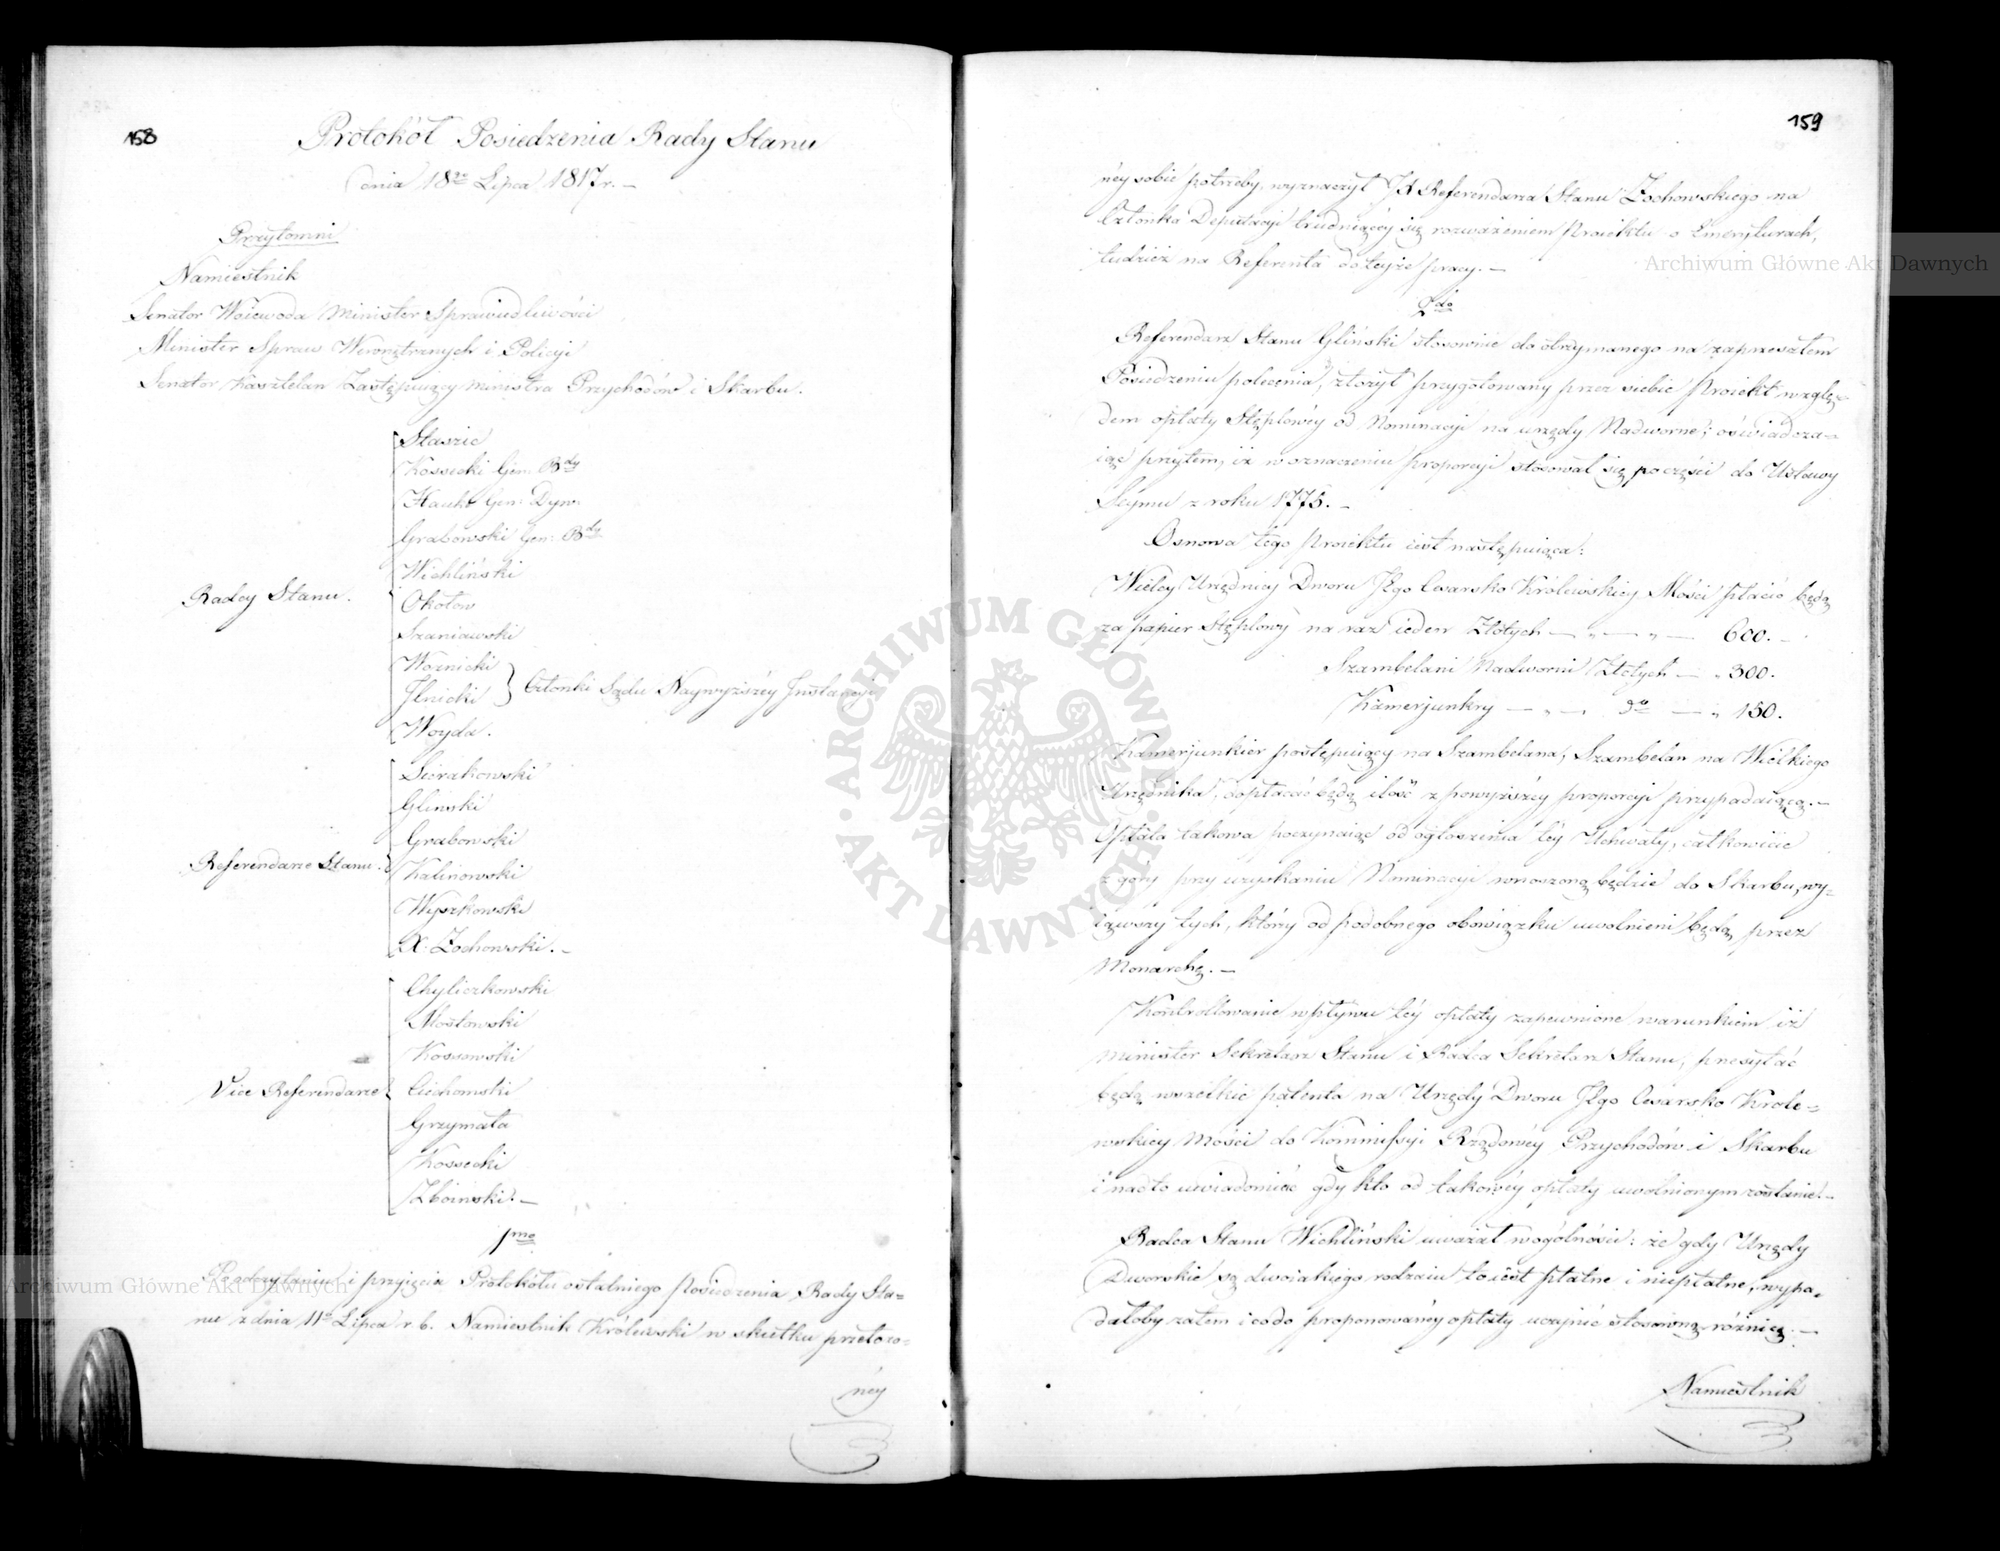 158
Protokół Posiedzenia Rady Stanu
dnia 18go Lipca 1817 r. —
Przytomni
Namiestnik
Senator Woiewoda Minister Sprawiedliwości
Minister Spraw Wewnętrznych i Policyi
Senator Kasztelan Zastępuiący Ministra Przychodów i Skarbu.
Radcy Stanu.
Staszic
Kossecki Gen: Bdy
Hauke Gen: Dyw:
Grabowski Gen: Bdy
Wichliński
Okołow
Szaniawski
Woznicki
Jlnicki } Członki Sądu Naywyższéy Instancyi
Woyda.
Referendarze Stanu.
Sierakowski
Gliński
Grabowski
Kalinowski
Wyszkowski
X. Zochowski. —
Vice Referendarze
Chyliczkowski
Mostowski
Kossowski
Ciechomski
Grzymała
Kossecki
Zboiński. —
1mo
Po odczytaniu i przyjęcia Protokółu ostatniego Posiedzenia Rady Sta=
nu z dnia 11go Lipca r. b. Namiestnik Królewski w skutku przełożo=
néy
159
néy sobie potrzeby, wyznaczył JX Referendarza Stanu Zochowskiego na
Członka Deputacyi trudniącéy się rozważeniem Proiektu o Emeryturach,
tudzież na Referenta do teyże pracy. —
2do
Referendarz Stanu Gliński stosownie do otrzymanego na zaprzeszłem
Posiedzeniu polecenia, złożył przygotowany przez siebie Proiekt wzglę=
dem opłaty Stęplowéy od Nominacyi na urzędy Nadworne; oświadcza=
iąc przytem, iż w oznaczeniu proporcyi stosował się poczęści do Ustawy
Seymu z roku 1775. —
Osnowa tego Proiektu iest następuiąca:
Wielcy Urzędnicy Dworu Jego Cesarsko Królewskiey Mości płacić będą
za papier Stęplowy na raz ieden Złotych — „ — „ — 600. —
Szambelani Nadworni Złotych — „ 300.
Kamerjunkry — „ — do — „ 150.
Kamerjunkier postępuiący na Szambelana, Szambelan na Wielkiego
Urzędnika, dopłacać będą ilość z powyższéy proporcyi przypadaiącą. —
Opłata takowa poczynaiąc od ogłoszenia téy Uchwały, całkowicie
z góry przy uzyskaniu Nominacyi wnoszoną będzie do Skarbu, wy=
iąwszy tych, którzy od podobnego obowiązku uwolnieni będą przez
Monarchę. —
Kontrollowanie wpływu téy opłaty zapewnione warunkiem iż
Minister Sekretarz Stanu i Radca Sekretarz Stanu, przesyłać
będą wszelkie patenta na Urzędy Dworu Jego Cesarsko Króle=
wskiey Mości do Kommissyi Rządowéy Przychodów i Skarbu
i nadto uwiadomiać gdy kto od takowéy opłaty uwolnionym zostanie. —
Radca Stanu Wichliński uważał wogólności: że gdy Urzędy
Dworskie są dwoiakiego rodzaiu to iest płatne i niepłatne, wypa=
dałoby zatem i co do proponowanéy opłaty uczynić stosowną różnicę. —
Namiestnik
Archiwum Główne Akt Dawnych
Archiwum Główne Akt Dawnych
ARCHIWUM GŁÓWNE · AKT DAWNYCH ·